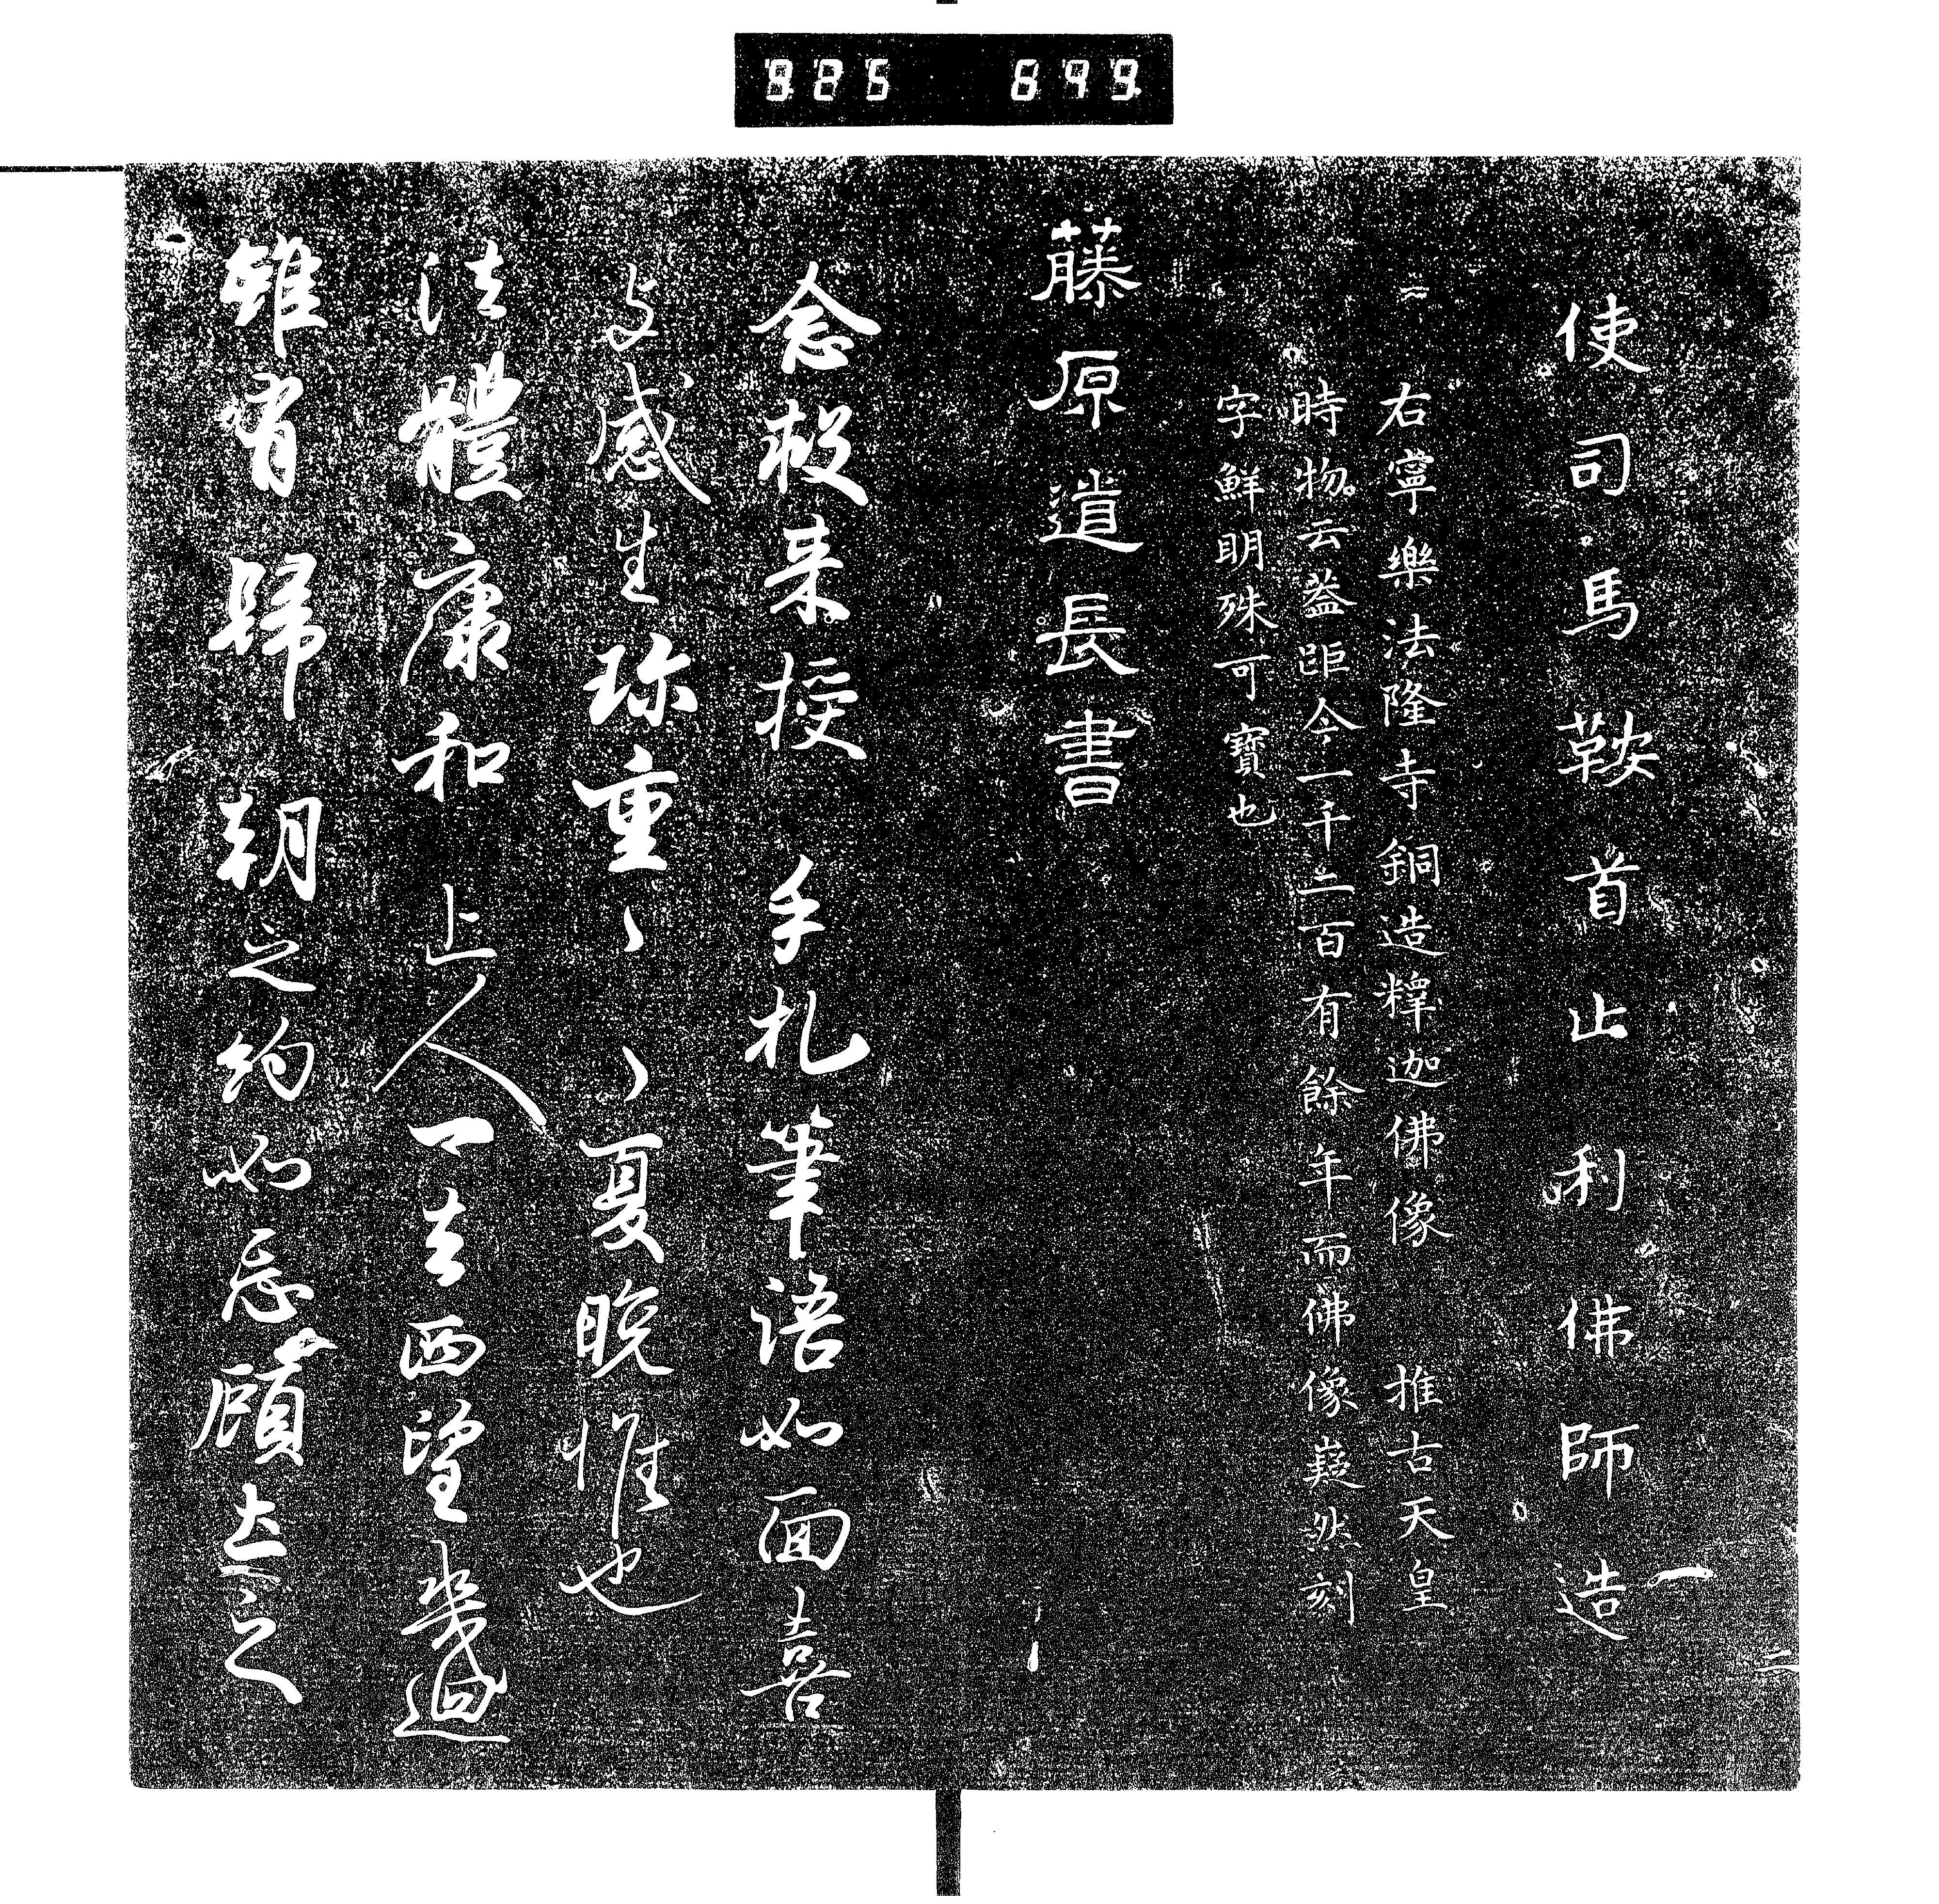 825 649
使司馬鞍首止利佛師造
右寧樂法隆寺銅造釋迦佛像 推古天皇
時物云蓋距今一千二百有餘年而佛像嶷然刻
字鮮明殊可寶也
藤原道長書
念救来授 手札筆語如面喜
与感生珎重〻〻夏晩惟也
法體康和上人一去西望
雖有歸朝之約如忘顧